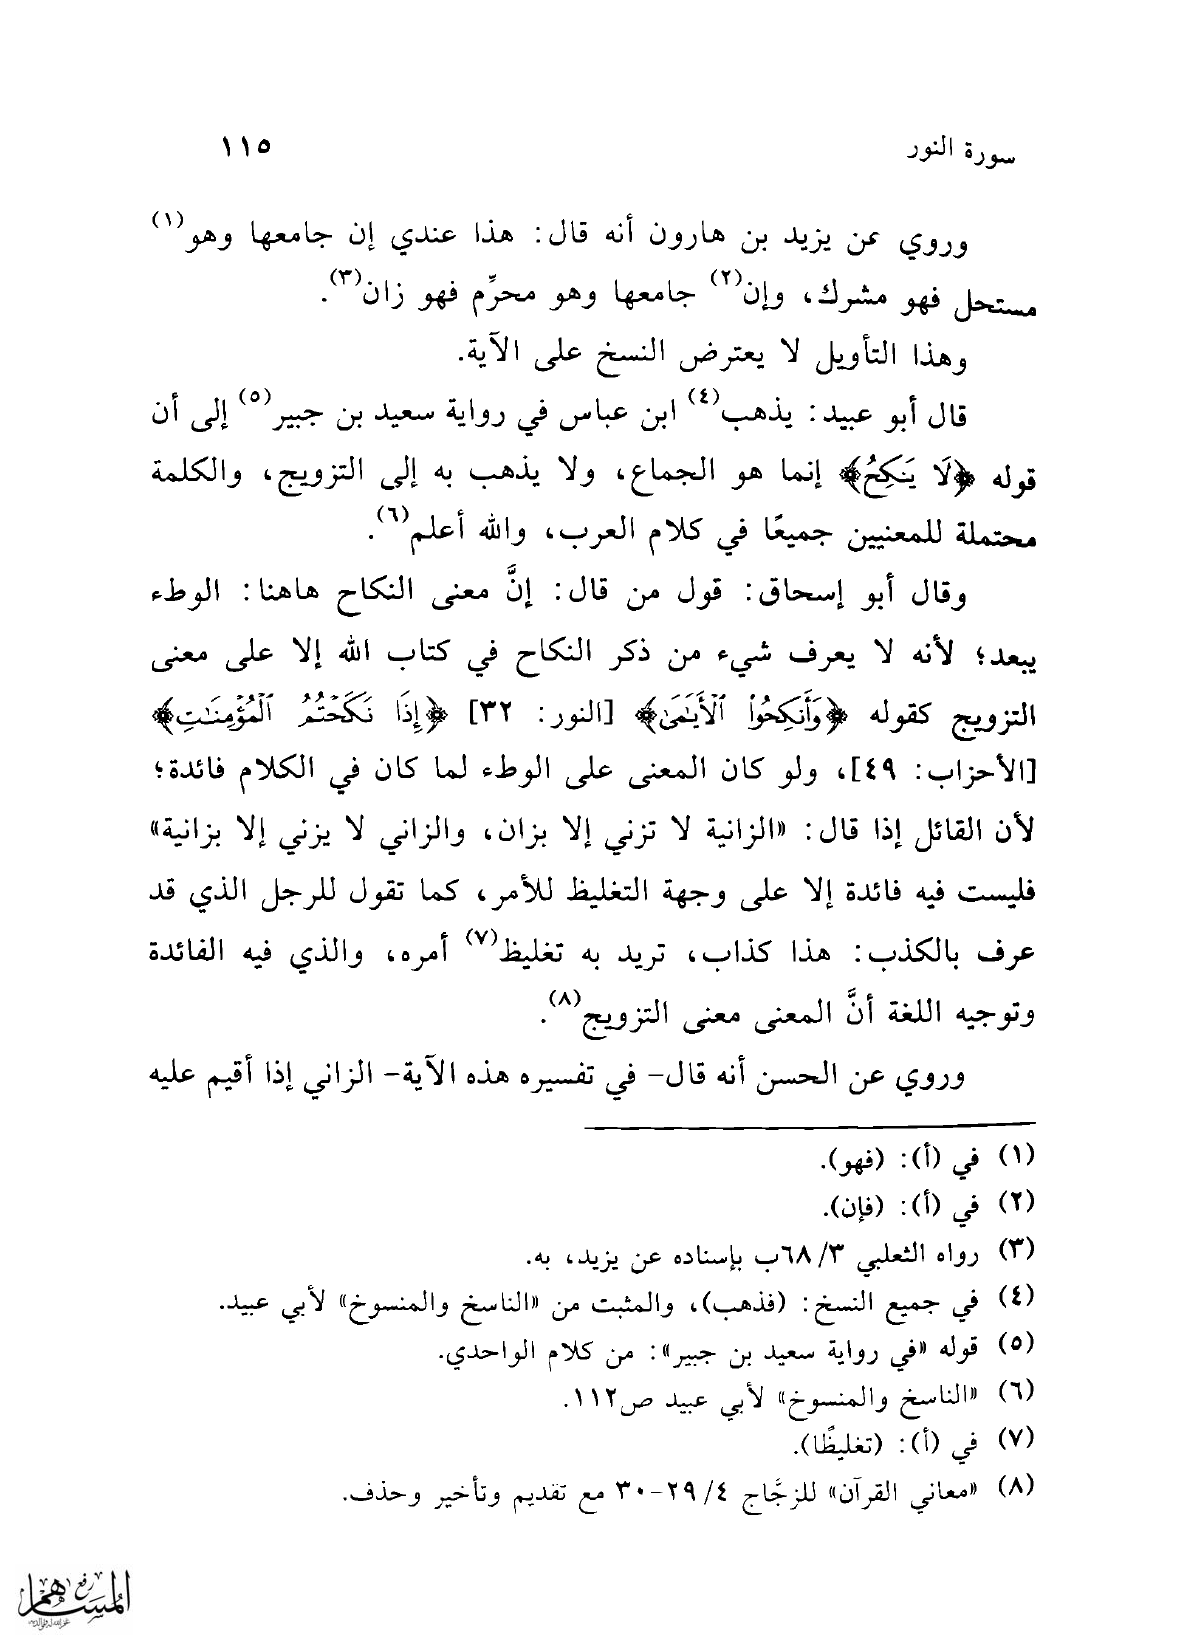 سورة النور
١١٥
وروي عن يزيد بن هارون أنه قال: هذا عندي إن جامعها وهو(١)
مستحل فهو مشرك، وإن(٢) جامعها وهو محرِّم فهو زان(٣).
وهذا التأويل لا يعترض النسخ على الآية.
قال أبو عبيد: يذهب(٤) ابن عباس في رواية سعيد بن جبير(٥) إلى أن
قوله ﴿لَا يَنكِحُ﴾ إنما هو الجماع، ولا يذهب به إلى التزويج، والكلمة
محتملة للمعنيين جميعًا في كلام العرب، والله أعلم(٦).
وقال أبو إسحاق: قول من قال: إنَّ معنى النكاح هاهنا: الوطء
يبعد؛ لأنه لا يعرف شيء من ذكر النكاح في كتاب الله إلا على معنى
التزويج كقوله ﴿وَأَنكِحُواْ ٱلْأَيَٰمَىٰ﴾ [النور: ٣٢] ﴿إِذَا نَكَحْتُمُ ٱلْمُؤْمِنَٰتِ﴾
[الأحزاب: ٤٩]، ولو كان المعنى على الوطء لما كان في الكلام فائدة؛
لأن القائل إذا قال: «الزانية لا تزني إلا بزان، والزاني لا يزني إلا بزانية»
فليست فيه فائدة إلا على وجهة التغليظ للأمر، كما تقول للرجل الذي قد
عرف بالكذب: هذا كذاب، تريد به تغليظ(٧) أمره، والذي فيه الفائدة
وتوجيه اللغة أنَّ المعنى معنى التزويج(٨).
وروي عن الحسن أنه قال- في تفسيره هذه الآية- الزاني إذا أقيم عليه
(١) في (أ): (فهو).
(٢) في (أ): (فإن).
(٣) رواه الثعلبي ٣/ ٦٨ب بإسناده عن يزيد، به.
(٤) في جميع النسخ: (فذهب)، والمثبت من «الناسخ والمنسوخ» لأبي عبيد.
(٥) قوله «في رواية سعيد بن جبير»: من كلام الواحدي.
(٦) «الناسخ والمنسوخ» لأبي عبيد ص١١٢.
(٧) في (أ): (تغليظًا).
(٨) «معاني القرآن» للزجَّاج ٤/ ٢٩-٣٠ مع تقديم وتأخير وحذف.